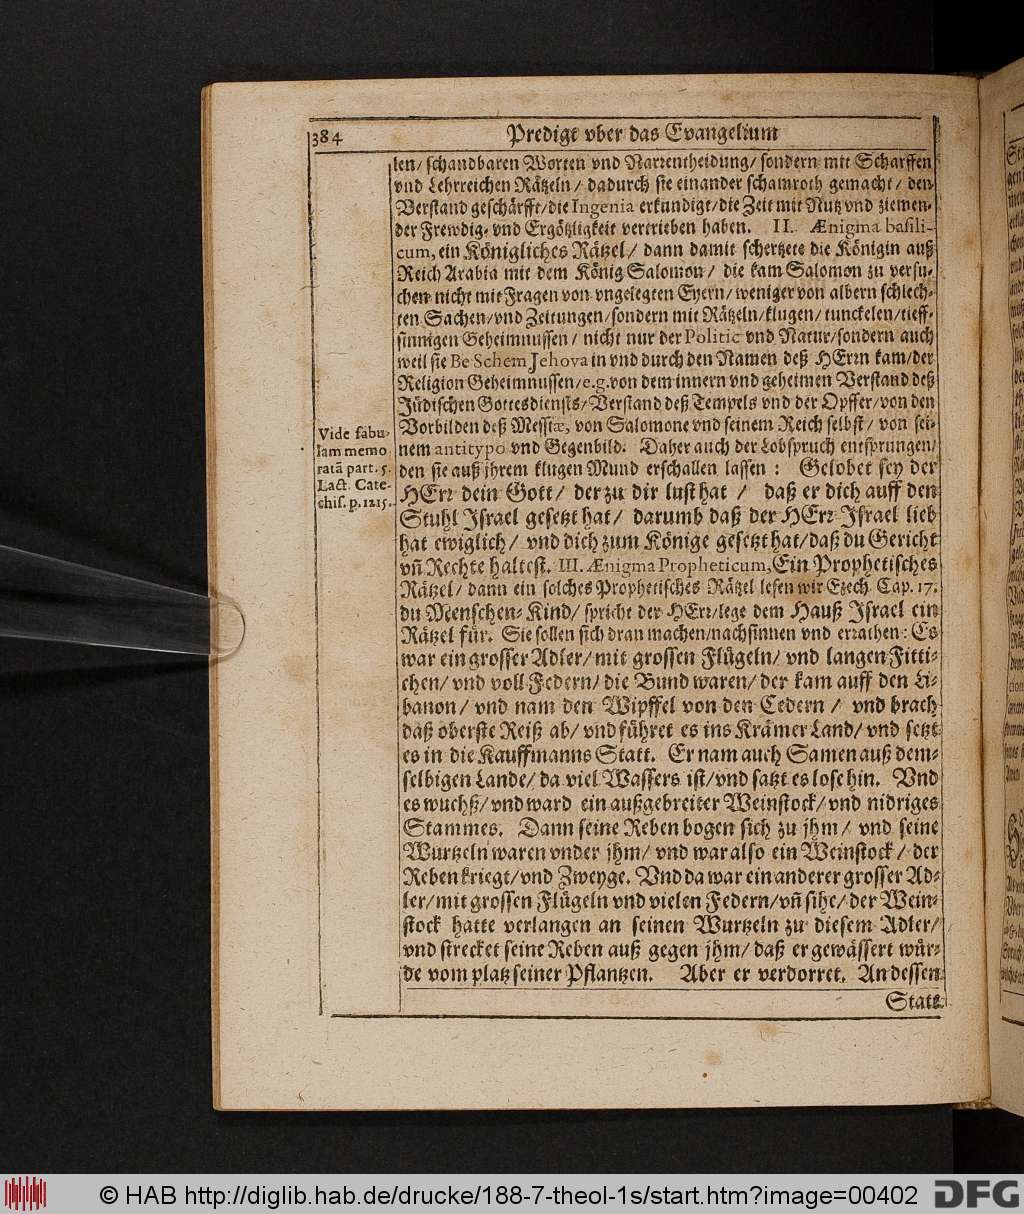 384
Predigt vber das Evangelium
ten/ schandbaren Worten vnd Narrentheidung/ sondern mit Scharffen
vnd Lehrreichen Rätzeln/ dadurch sie einander schamroth gemacht/ den
Verstand geschärfft/die Ingenia erkundigt/die Zeit mit Nutz vnd ziemen-
der Frewdig- vnd Ergötzligkeit vertrieben haben. II. Ænigma basili-
cum, ein Königliches Rätzel/ dann damit schertzete die Königin auß
Reich Arabia mit dem König Salomon/ die kam Salomon zu versu-
chen nicht mit Fragen von vngelegten Eyern/ weniger von albern schlech-
ten Sachen/vnd Zeitungen/sondern mit Rätzeln/klugen/ tunckelen/tieff-
sinnigen Geheimnussen/ nicht nur der Politic vnd Natur/sondern auch
weil sie Be Schem Jehova in vnd durch den Namen deß HErrn kam/der
Religion Geheimnussen/e.g.von dem innern vnd geheimen Verstand deß
Jüdischen Gottesdiensts/Verstand deß Tempels vnd der Opffer/von den
Vorbilden deß Messiæ, von Salomone vnd seinem Reich selbst/ von sei-
nem antitypo vnd Gegenbild. Daher auch der Lobspruch entsprungen/
den sie auß jhrem klugen Mund erschallen lassen: Gelobet sey der
HErr dein Gott/ der zu dir lust hat/ daß er dich auff den
Stuhl Israel gesetzt hat/ darumb daß der HErr Israel lieb
hat ewiglich/ vnd dich zum Könige gesetzt hat/daß du Gericht
vñ Rechte haltest. III. Ænigma Propheticum, Ein Prophetisches
Rätzel/ dann ein solches Prophetisches Rätzel lesen wir Ezech. Cap. 17.
du Menschen-Kind/ spricht der HErr/lege dem Hauß Israel ein
Rätzel für. Sie sollen sich dran machen/nachsinnen vnd errathen: Es
war ein grosser Adler/ mit grossen Flügeln/ vnd langen Fitti-
chen/ vnd voll Federn/ die Bund waren/ der kam auff den Li-
banon/ vnd nam den Wipffel von den Cedern/ vnd brach
daß oberste Reiß ab/ vnd führet es ins Krämer Land/ vnd setzt
es in die Kauffmanns Statt. Er nam auch Samen auß dem-
selbigen Lande/ da viel Wassers ist/vnd satzt es lose hin. Vnd
es wuchß/ vnd ward ein außgebreiter Weinstock/ vnd nidriges
Stammes. Dann seine Reben bogen sich zu jhm/ vnd seine
Wurtzeln waren vnder jhm/ vnd war also ein Weinstock/ der
Reben kriegt/vnd Zweyge. Vnd da war ein anderer grosser Ad-
ler/mit grossen Flügeln vnd vielen Federn/vñ sihe/ der Wein-
stock hatte verlangen an seinen Wurtzeln zu diesem Adler/
vnd strecket seine Reben auß gegen jhm/ daß er gewässert wür-
de vom platz seiner Pflantzen. Aber er verdorret. An dessen
Statt
Vide fabu-
lam memo
ratã part. 5.
Lact. Cate-
chis. p. 1215.
© HAB http://diglib.hab.de/drucke/188-7-theol-1s/start.htm?image=00402
DFG